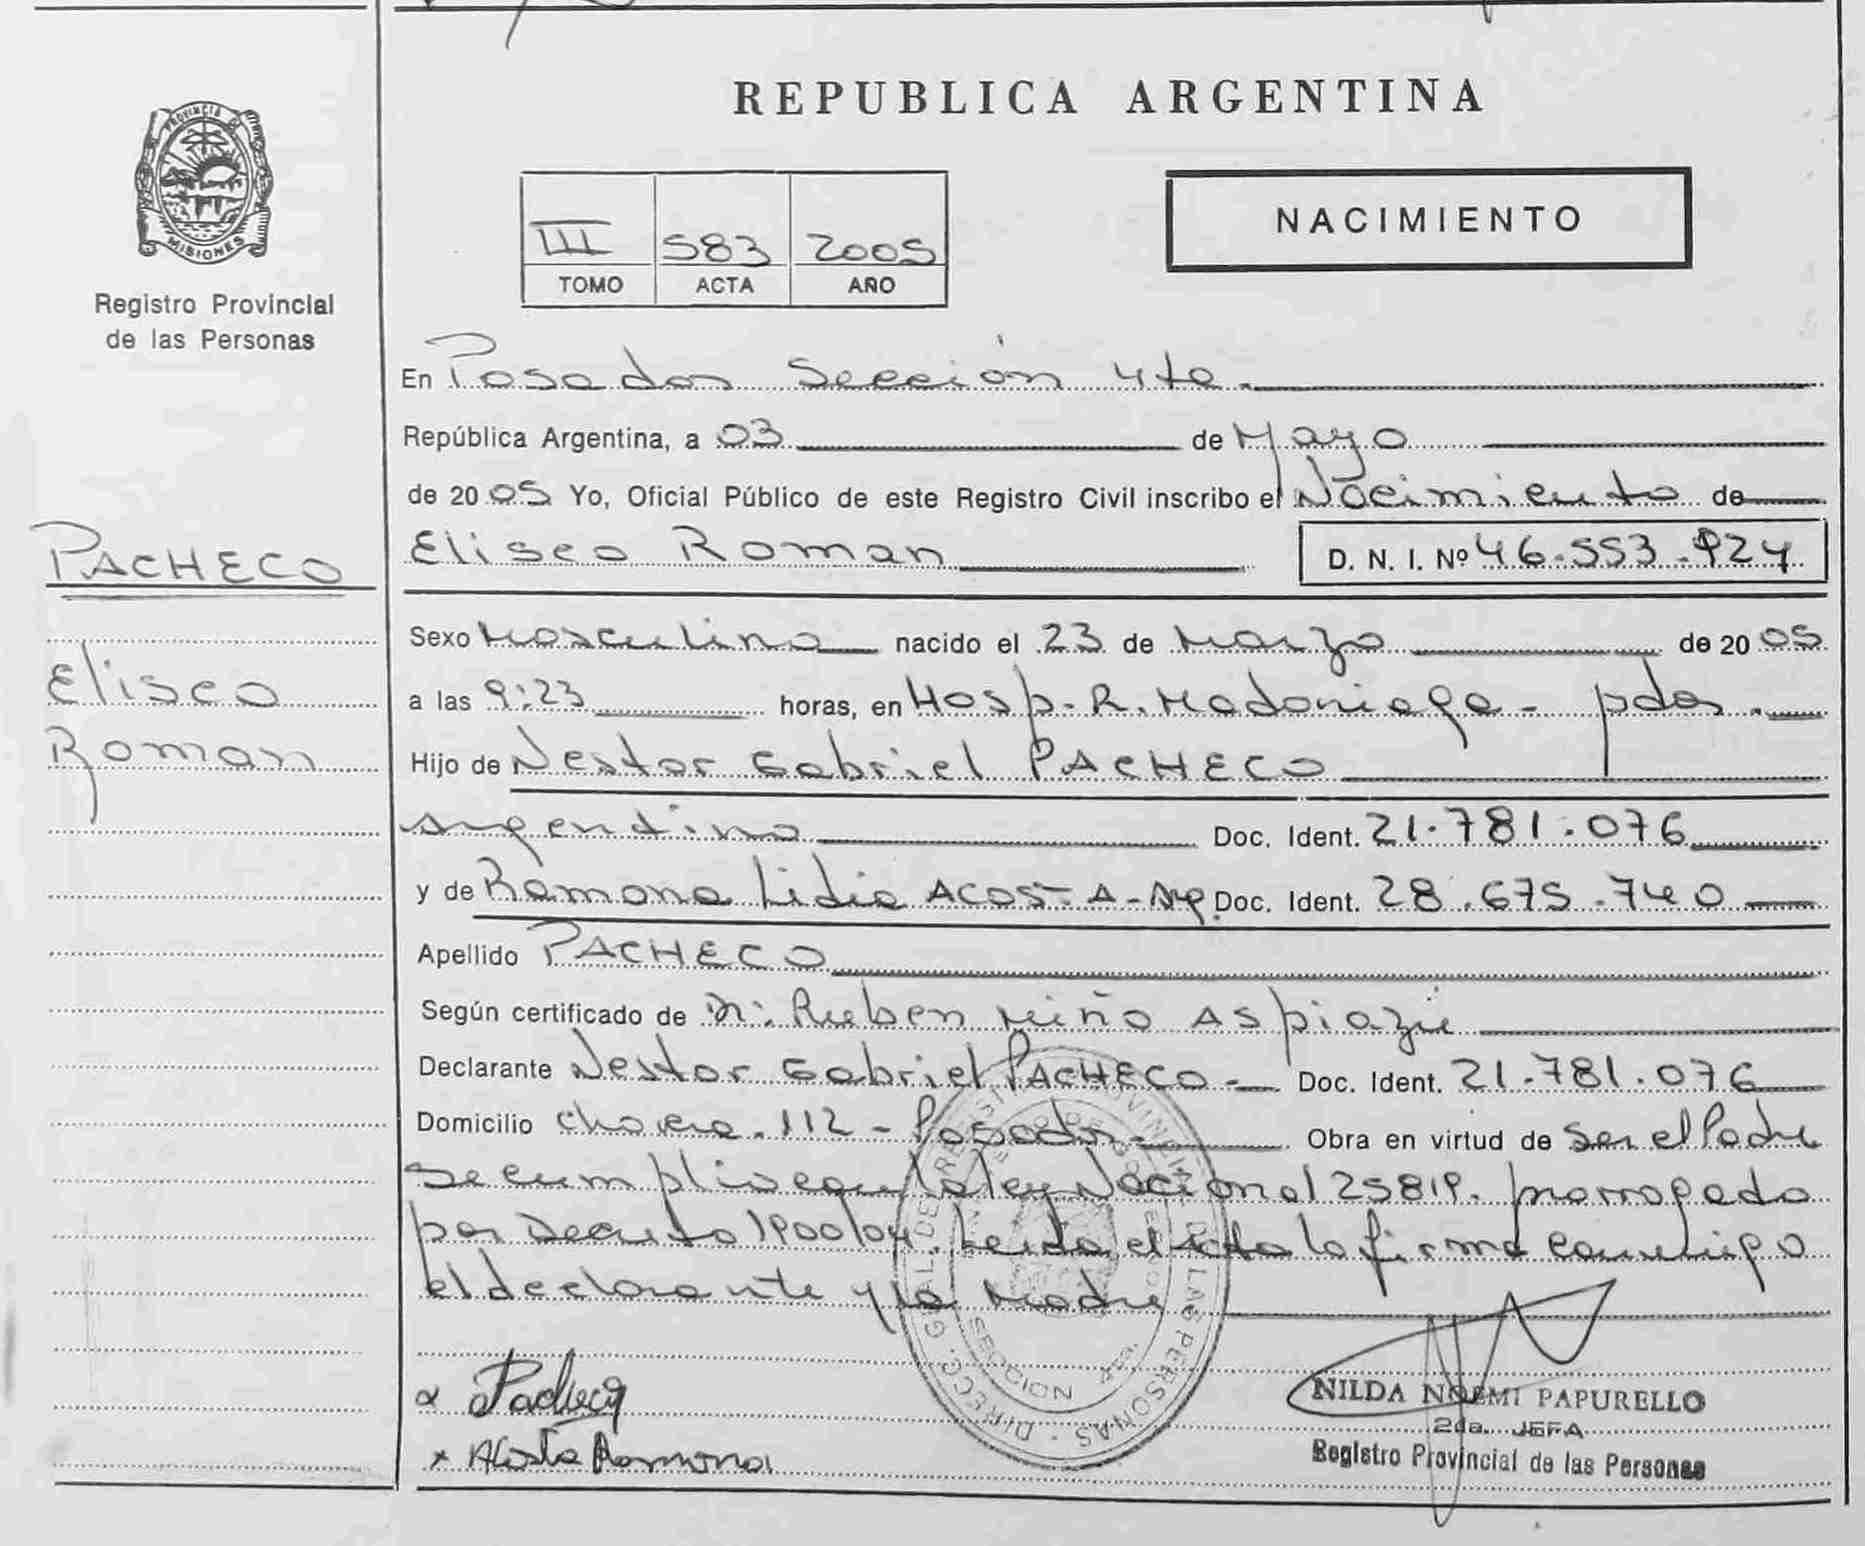 REPUBLICA ARGENTINA
PROVINCIA DE
MISIONES
Registro Provincial
de las Personas
III 583 2005
TOMO ACTA AÑO
NACIMIENTO
En Posadas Sección 4ta
República Argentina, a 03 de Mayo
de 2005 Yo, Oficial Público de este Registro Civil inscribo el Nacimiento de
PACHECO
Eliseo Roman
D. N. I. Nº 46.553.924
Sexo Masculino nacido el 23 de Marzo de 2005
Eliseo
Roman
a las 9:23 horas, en Hosp. R. Madariaga - pdas.
Hijo de Nestor Gabriel PACHECO
argentino Doc. Ident. 21.781.076
y de Ramona Lidia ACOSTA - Arg. Doc. Ident. 28.675.740
Apellido PACHECO
Según certificado de Dr. Ruben Miño Aspiazú
Declarante Nestor Gabriel PACHECO - Doc. Ident. 21.781.076
Domicilio Chacra 112 - Posadas Obra en virtud de Ser el Padre
se cumplio con la ley Nacional 25819. prorrogado
por Decreto 1900/04. Leida el acta la firma conmigo
el declarante y la Madre
Pacheco
x Acosta Ramona
NILDA NOEMI PAPURELLO
2da. JEFA
Registro Provincial de las Personas
DIRECC. GRAL. DE REGISTRO PROVINCIAL DE LAS PERSONAS
SECCION